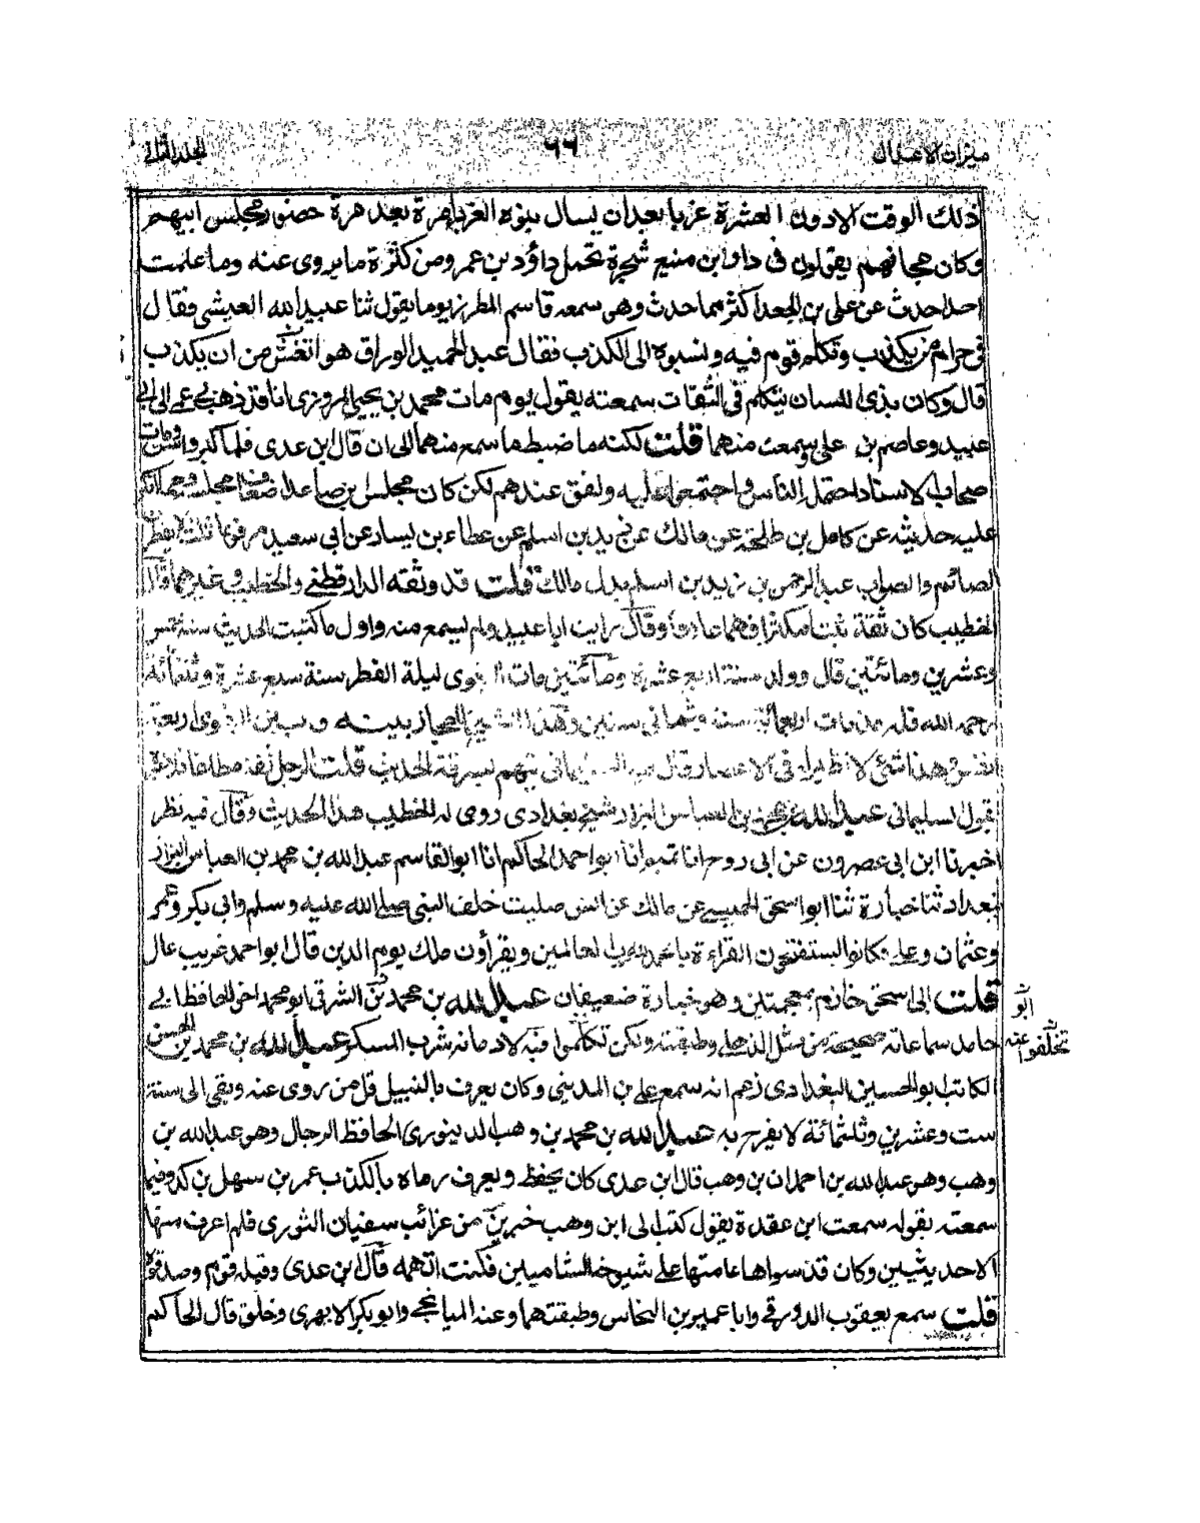 ميزان الاعتدال ٦٦ المجلد الثاني
ذلك الوقت الادون العشرة غربا بعد ان يسال بنوه الغربا مرة بعد مرة حضور مجلس ابيهم
وكان مجانهم يقولون فى دار ابن منيع شجرة تحمل داؤد بن عمرو من كثرة ما يروى عنه وما علمت
احدا حدث عن على بن الجعد اكثر مما حدث وهى سمعه قاسم المطرز يوما يقول ثنا عبيد الله العيشى فقال
فى حرام من يكذب وتكلم قوم فيه ونسبوه الى الكذب فقال عبد الحميد الوراق هو انغش من ان يكذب
قال وكان بذئ اللسان يتكلم فى الثقات سمعته يقول يوم مات محمد بن يحيى المروزى انا قد ذهب بى عمى الى ابى
عبيد وعاصم بن على وسمعت منهما قلت لكنه ما ضبط ما سمع منهما الى ان قال ابن عدى فلما كبر واسن ومات
صحاب الاسناد احتمل الناس واجتمعوا عليه ونفق عندهم لكن كان مجلس بن صاعد اضعاف مجلسه ومما انكر
عليه حديثه عن كامل بن طلحة عن مالك عن زيد بن اسلم عن عطاء بن يسار عن ابى سعيد مرفوعا ثلث لا يفطرن
الصائم والصواب عبد الرحمن بن زيد بن اسلم بدل مالك قلت قد وثقه الدارقطنى والخطيب وغيرهما قال
الخطيب كان ثقة ثبتا مكثرا فهما عارفا وقال رايت ابا عبيد ولم يسمع منه واول ما كتبت الحديث سنة خمس
وعشرين ومائتين قال وولد سنة اربع عشرة ومائتين مات البغوى ليلة الفطر سنة سبع عشرة وثلثمائة
رحمه الله قلت مذ مات اربعمائة سنة وثمانى سنين وهذا الشيخ الحجاز بينه وبين البغوى اربعة
انفس وهذا شئ لا نظير له فى الاعصار قال السليمانى يتهم بسرقة الحديث قلت الرجل ثقة مطلقا فلا عبرة
بقول السليمانى عبد الله بن محمد بن العباس البزار شيخ بغدادى روى له الخطيب هذا الحديث وقال فيه نظر
اخبرنا ابن ابى عصرون عن ابى روح انا تميم انا ابو احمد الحاكم انا ابو القاسم عبد الله بن محمد بن العباس البزار
ببغداد ثنا جبارة ثنا ابو اسحق الحميسى عن مالك عن انس صليت خلف النبى صلى الله عليه وسلم وابى بكر وعمر
وعثمان وعلى فكانوا يستفتحون القراءة بالحمد لله رب العالمين ويقرأون ملك يوم الدين قال ابو احمد غريب عال
قلت ابى اسحق خازم بمعجمتين وهو جبارة ضعيفان عبد الله بن محمد بن الشرقى ابو محمد اخى الحافظ ابى
ابو
حامد سماعاته صحيحة من مثل الذهلى وطبقته ولكن تكلموا فيه لادمانه شرب المسكر عبد الله بن محمد بن الحسن
تخلفوا عنه
الكاتب ابو الحسين البغدادى زعم انه سمع على بن المدينى وكان يعرف بالنبيل قل من روى عنه وبقى الى سنة
ست وعشرين وثلثمائة لا يفرح به عبد الله بن محمد بن وهب الدينورى الحافظ الرجال وهو عبد الله بن
وهب وهو عبد الله بن احمدان بن وهب قال ابن عدى كان يحفظ ويعرف رماه بالكذب عمر بن سهل بن كدو فيما
سمعته يقوله سمعت ابن عقدة يقول كتب الى ابن وهب جزئين من غرائب سفيان الثورى فلم اعرف منها
الا حديثين وكان قد سواها عامتها على شيوخه الشاميين فكنت اتهمه قال ابن عدى وقبله قوم وصدقوه
قلت سمع يعقوب الدورقى وابا عمير بن النحاس وطبقتهما وعنه الميانجى وابو بكر الابهرى وخلق قال الحاكم